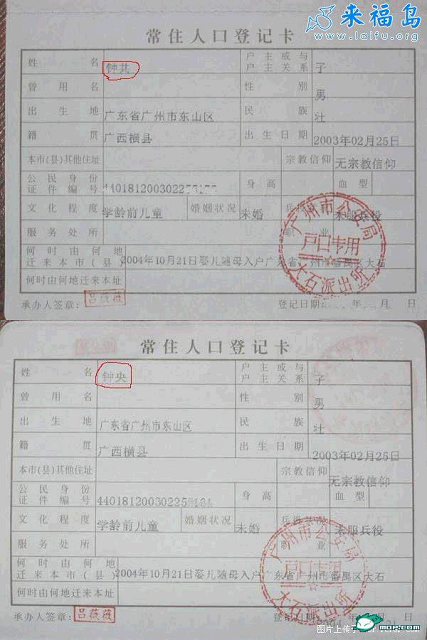 来福岛
www.laifu.org
常住人口登记卡
姓名 钟共 户主或与户主关系 子
曾用名 性别 男
出生地 广东省广州市东山区 民族 壮
籍贯 广西横县 出生日期 2003年02月25日
本市(县)其他住址 宗教信仰 无宗教信仰
公民身份证件编号 身高 血型
文化程度 学龄前儿童 婚姻状况 未婚 未服兵役
服务处所
何时由何地迁来本市(县) 2004年10月21日
何时由何地迁来本址
承办人签章: 吕薇薇 登记日期: 年 月 日
广州市公安局
户口专用
大石派出所
常住人口登记卡
姓名 钟央 户主或与户主关系 子
曾用名 性别 男
出生地 广东省广州市东山区 民族 壮
籍贯 广西横县 出生日期 2003年02月25日
本市(县)其他住址 宗教信仰 无宗教信仰
公民身份证件编号 身高 血型
文化程度 学龄前儿童 婚姻状况 未婚 未服兵役
服务处所
何时由何地迁来本市(县) 2004年10月21日
何时由何地迁来本址
承办人签章: 吕薇薇
mop.com